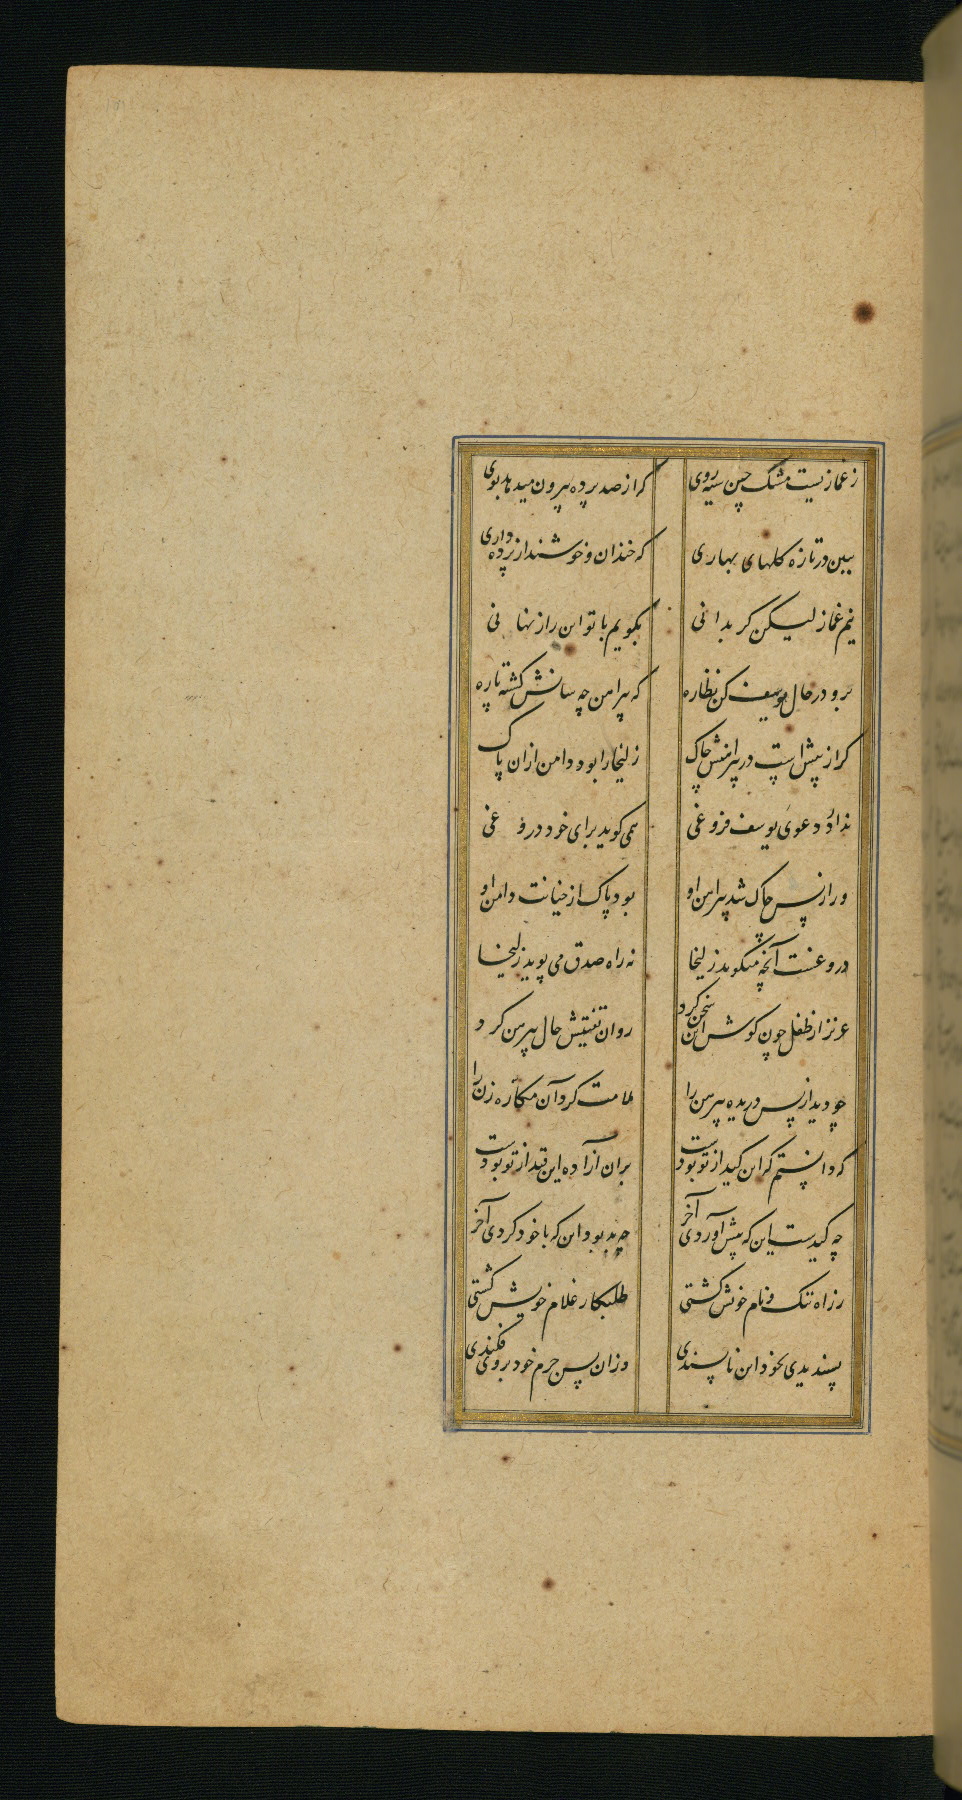 ز غمازیست مشک چین سیه روی کز از صد پرده بیرون میدهد بوی
ببین در تازه کلهای بهاری که خندان و خوشند از پرده داری
نیم غماز لیکن کر بدانی بکویم با تو این راز نهانی
برو در حال یوسف کن نظاره که پیراهن چه سانش کشته پاره
کر از پیش است در پیراهنش چاک زلیخا را بود دامن ازان پاک
ندارد دعوی یوسف فروغی همی کوید برای خود دروغی
ور از پس چاک شد پیراهن او بود پاک از خیانت دامن او
دروغست آنچه میکوید زلیخا نه راه صدق می پوید زلیخا
عزیز از طفل چون کوش این سخن کرد روان تفتیش حال پیرهن کرد
چو دید از پس دریده پیرهن را ملامت کرد آن مکاره زن را
که دانستم که این کید از تو بودست بران آزاده این قید از تو بودست
چه کیدست این که پیش آوردی آخر چه بد بود این که با خود کردی آخر
ز راه ننک و نام خویش کشتی طلبکار غلام خویش کشتی
پسندیدی بخود این ناپسندی وزان پس جرم خود بر وی فکندی